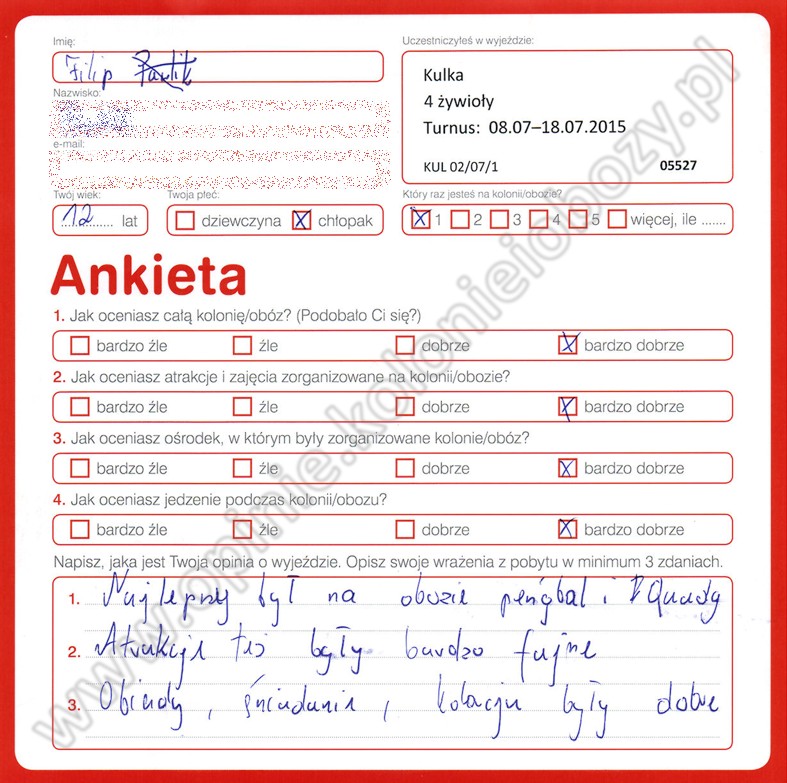 Imię:
Filip
Nazwisko:
e-mail:
Twój wiek:
12 lat
Twoja płeć:
dziewczyna chłopak
Uczestniczyłeś w wyjeździe:
Kulka
4 żywioły
Turnus: 08.07–18.07.2015
KUL 02/07/1 05527
Który raz jesteś na kolonii/obozie?
1 2 3 4 5 więcej, ile .......
Ankieta
1. Jak oceniasz całą kolonię/obóz? (Podobało Ci się?)
bardzo źle źle dobrze bardzo dobrze
2. Jak oceniasz atrakcje i zajęcia zorganizowane na kolonii/obozie?
bardzo źle źle dobrze bardzo dobrze
3. Jak oceniasz ośrodek, w którym były zorganizowane kolonie/obóz?
bardzo źle źle dobrze bardzo dobrze
4. Jak oceniasz jedzenie podczas kolonii/obozu?
bardzo źle źle dobrze bardzo dobrze
Napisz, jaka jest Twoja opinia o wyjeździe. Opisz swoje wrażenia z pobytu w minimum 3 zdaniach.
1. Najlepszy był na obozie pengbal i Quady
2. Atrakcje też były bardzo fajne
3. Obiady, śniadania, kolacje były dobre
www.opinie.kolonieiobozy.pl